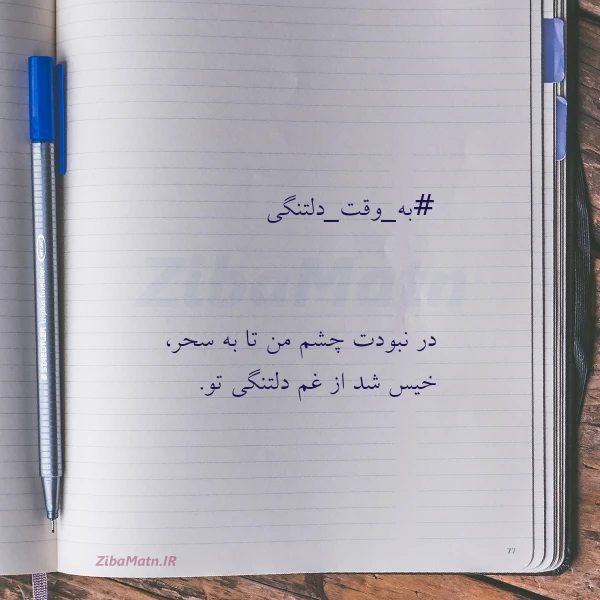 #به_وقت_دلتنگی
ZibaMatn
در نبودت چشم من تا به سحر،
خیس شد از غم دلتنگی تو.
ZibaMatn.IR